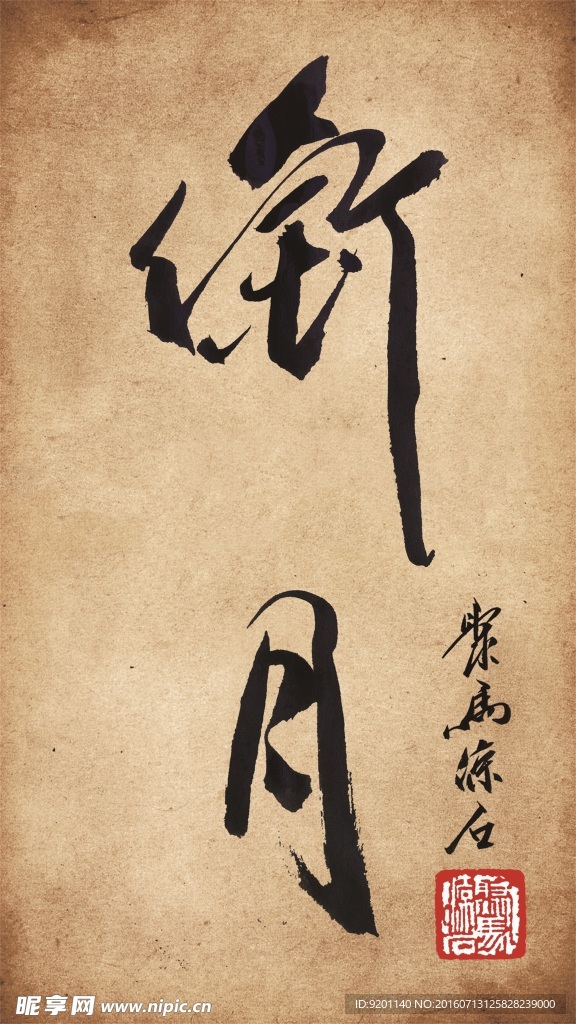 銜月
聚馬涼石
昵享网 www.nipic.cn
ID:9201140 NO:20160713125828239000